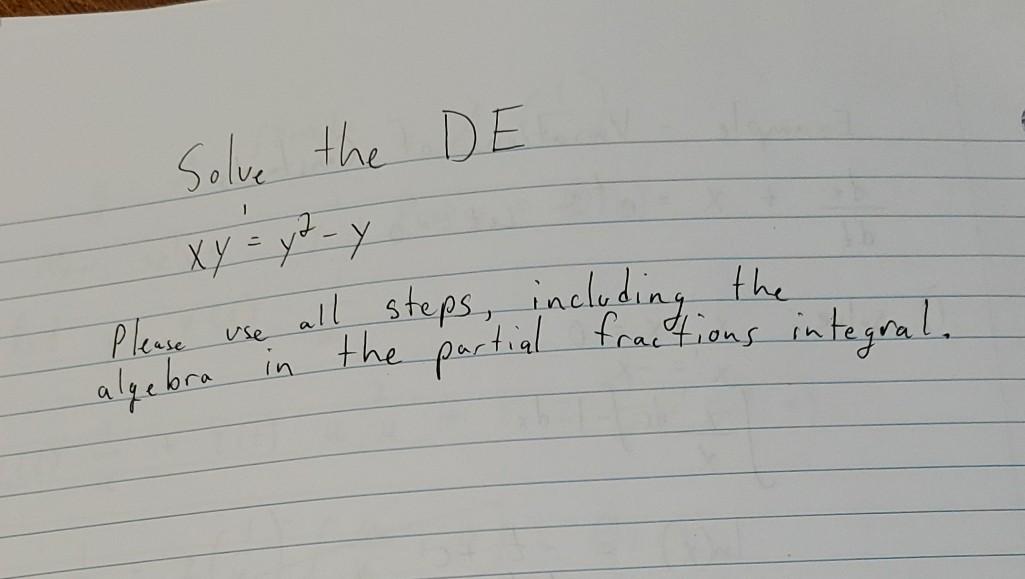 Solve the DE
xy' = y² - y
Please use all steps, including the
algebra in the partial fractions integral.